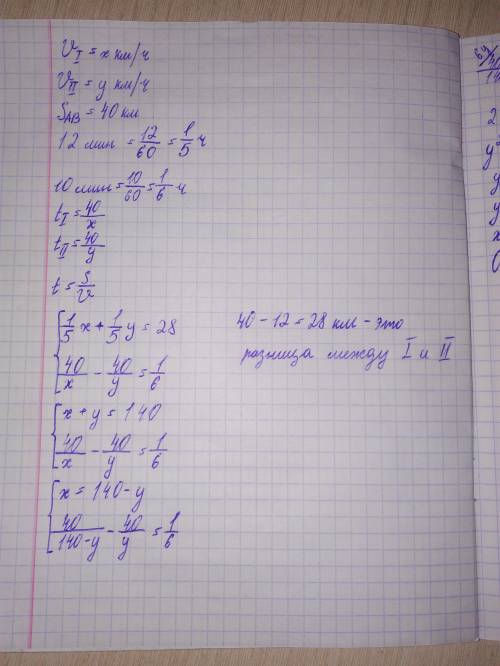 V_I = x км/ч
V_II = y км/ч
S_AB = 40 км
12 мин = 12/60 = 1/5 ч
10 мин = 10/60 = 1/6 ч
t_I = 40/x
t_II = 40/y
t = S/v
{ 1/5 x + 1/5 y = 28
40/x - 40/y = 1/6
40 - 12 = 28 км - это
разница между I и II
{ x + y = 140
40/x - 40/y = 1/6
{ x = 140 - y
40/(140-y) - 40/y = 1/6
2
y
y
y
x